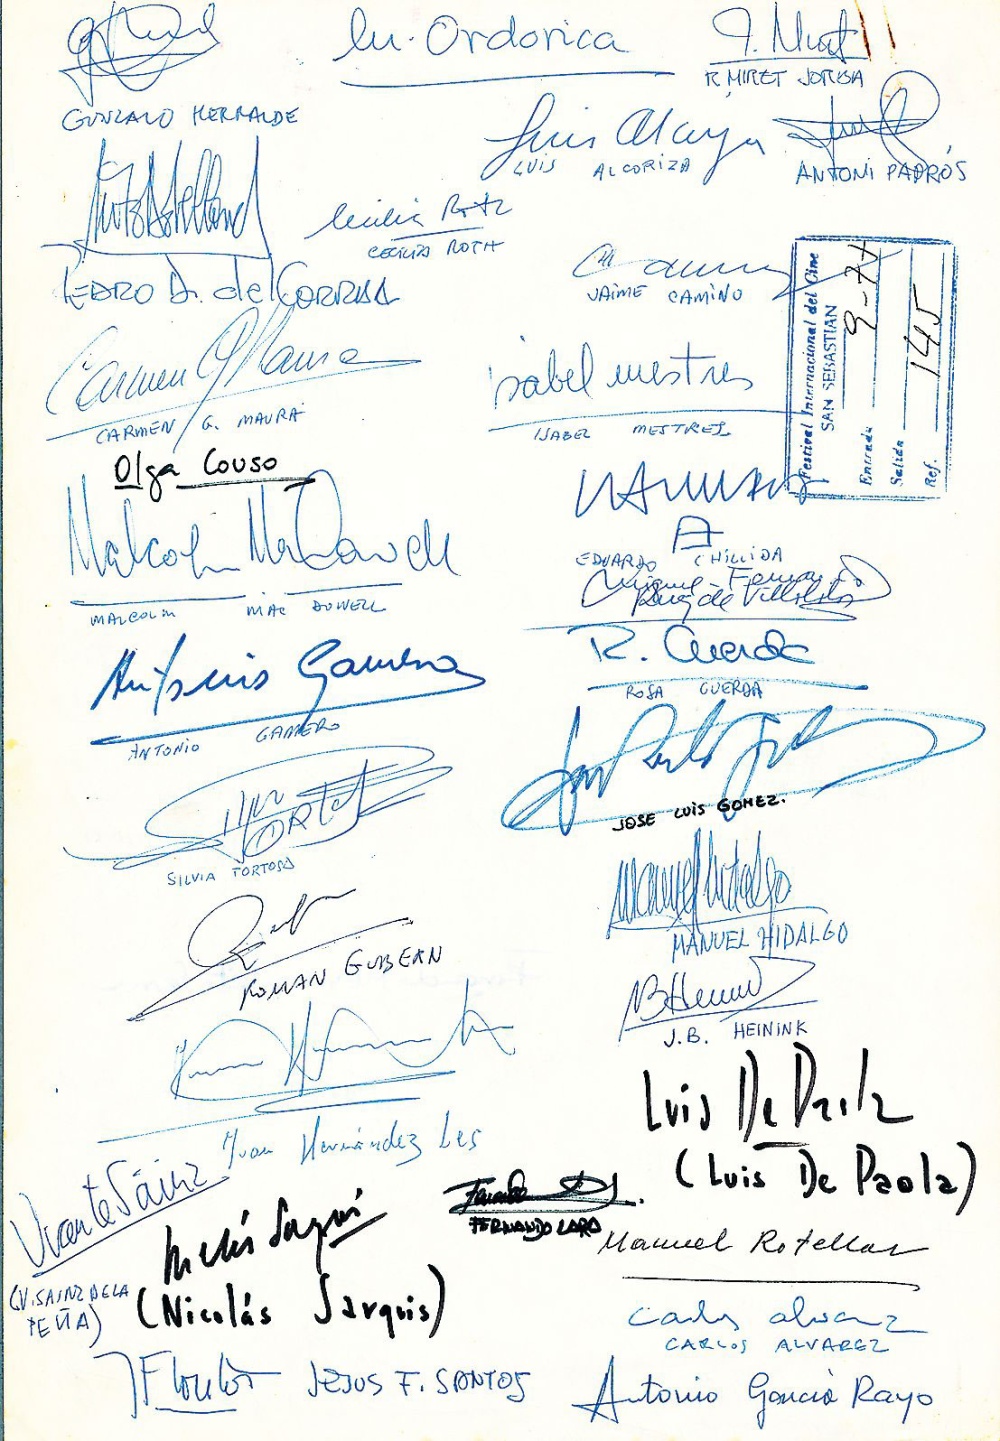 Ordorica
R. MIRET JORBA
GONZALO HERRALDE
Luis Alcoriza
LUIS ALCORIZA
ANTONI PADRÓS
Cecilia Roth
CECILIA ROTH
PEDRO A. del CORRAL
JAIME CAMINO
Festival Internacional del Cine
SAN SEBASTIAN
Entrada 9-77
Salida
Ref. 145
Carmen G Maura
CARMEN G. MAURA
isabel mestres
ISABEL MESTRES
Olga Couso
Malcolm McDowell
MALCOLM MAC DOWELL
EDUARDO CHILLIDA
Miguel Fernando
Ruiz de Villalobos
R. Cuerda
ROSA CUERDA
Antonio Gamero
ANTONIO GAMERO
JOSE LUIS GOMEZ.
SILVIA TORTOSA
Manuel Hidalgo
MANUEL HIDALGO
ROMAN GUBERN
JBHeinink
J.B. HEININK
Juan Hernández Les
Luis De Paola
(Luis De Paola)
Vicente Sáinz
(V. SAINZ DE LA
PEÑA)
Nicolás Sarquis
(Nicolás Sarquis)
FERNANDO LARA
Manuel Rotellar
Carlos Alvarez
CARLOS ALVAREZ
JESUS F. SANTOS
Antonio García Rayo